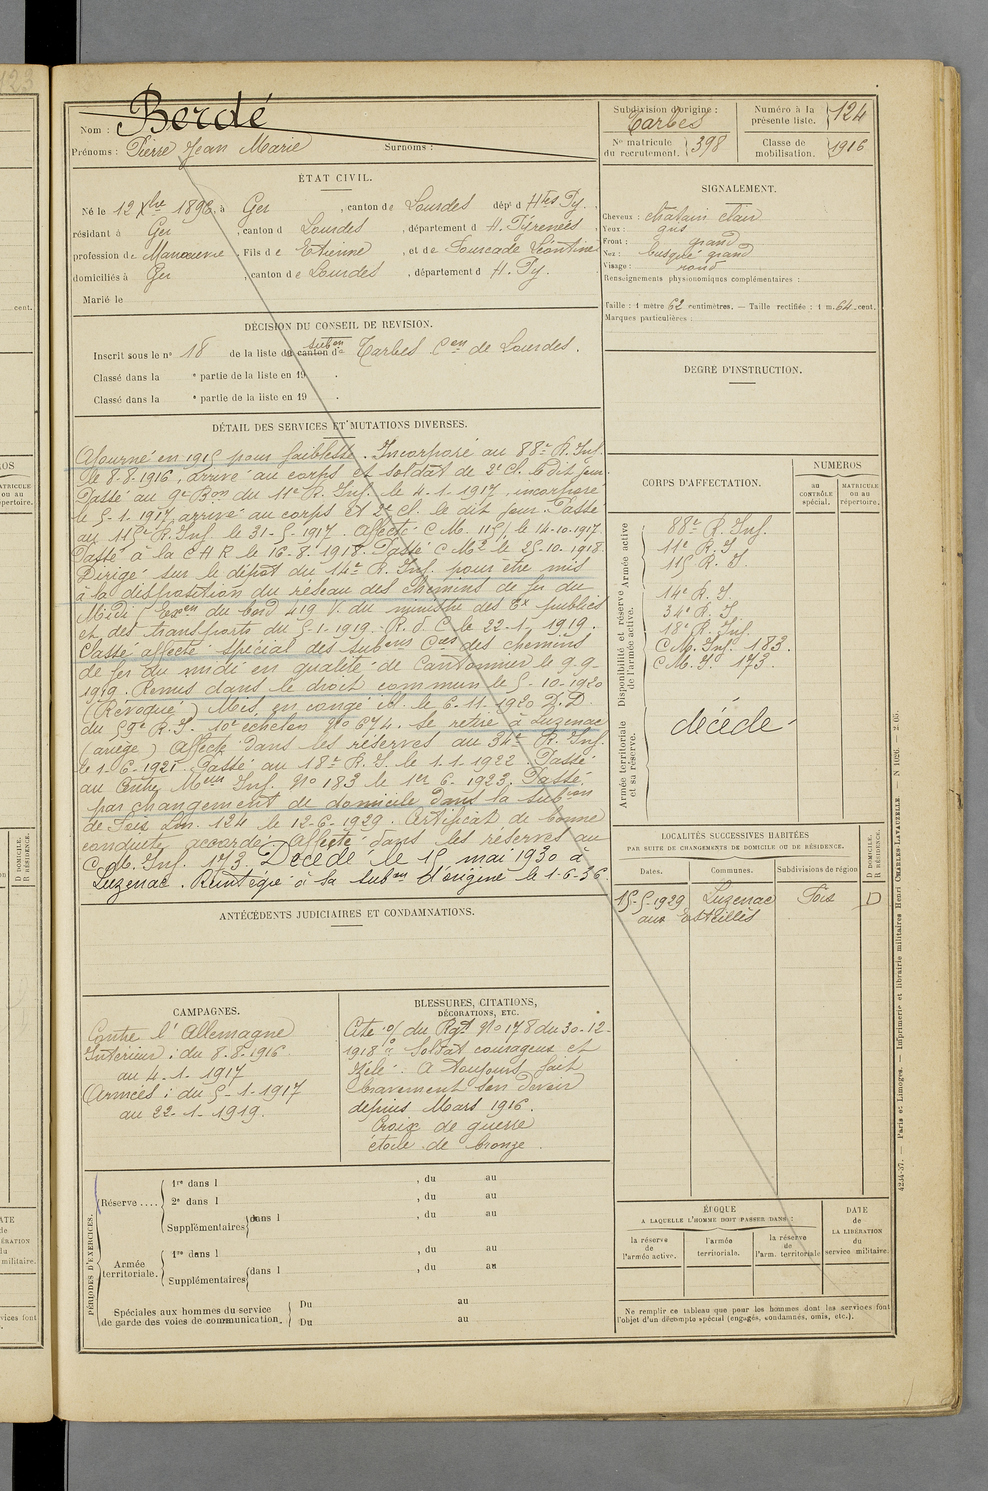 Nom : Berdé
Prénoms : Pierre Jean Marie Surnoms :
Subdivision d'origine : Tarbes
Nº matricule du recrutement. 398
Numéro à la présente liste. 124
Classe de mobilisation. 1916
ÉTAT CIVIL.
Né le 12 Xbre 1896, à Ger, canton de Lourdes dépt d Htes Py.
résidant à Ger, canton d Lourdes, département d H. Pyrénées
profession de Manœuvre, Fils de Etienne, et de Fourcade Léontine
domiciliés à Ger, canton de Lourdes, département d H. Py.
Marié le
SIGNALEMENT.
Cheveux : châtain clair
Yeux : gris
Front : grand
Nez : busqué grand
Visage : rond
Renseignements physionomiques complémentaires :
Taille : 1 mètre 62 centimètres. — Taille rectifiée : 1 m. 64 cent.
Marques particulières :
DÉCISION DU CONSEIL DE REVISION.
Inscrit sous le nº 18 de la liste du canton de subon Tarbes Con de Lourdes.
Classé dans la e partie de la liste en 19 .
Classé dans la e partie de la liste en 19 .
DEGRÉ D'INSTRUCTION.
DÉTAIL DES SERVICES ET MUTATIONS DIVERSES.
Ajourné en 1915 pour faiblesse. Incorporé au 88e R. Inf.
le 8-8-1916, arrivé au corps et soldat de 2e Cl. le dit jour.
Passé au 9e Bon du 11e R. Inf. le 4-1-1917, incorporé
le 5-1-1917, arrivé au corps et 2e Cl. le dit jour. Passé
au 115e R. Inf le 31-5-1917. Affecté C M. 115/1 le 14-10-1917
Passé à la C H R le 16-8-1918. Passé C M2 le 25-10-1918.
Dirigé sur le dépôt du 14e R. Inf. pour être mis
à la disposition du réseau des chemins de fer du
Midi Exon du bord 419 V. du ministre des Tx publics
et des transports du 5-1-1919. R. d C le 22-1-1919.
Classé affecté spécial des subons Cies des chemins
de fer du midi en qualité de Cantonnier le 9-9-
1919. Remis dans le droit commun le 5-10-1920
(Révoqué) Mis en congé ill. le 6-11-1920 D.D.
du 59e R. I. 10e échelon Nº 674. Se retire à Luzenac
(ariège) Affecté dans les réserves au 34e R. Inf.
le 1-6-1921. Passé au 18e R. I. le 1.1.1922. Passé
au Centre Meur Inf. Nº 183 le 1er 6-1923. Passé
par changement de domicile dans la subon
de Foix Lon. 124 le 12-6-1929. Certificat de bonne
conduite accordé. Affecté dans les réserves au
C. M. Inf. 173. Décédé le 15 mai 1930 à
Luzenac. Réintégré à sa subon d'origine le 1-6-36
CORPS D'AFFECTATION.
NUMÉROS
au CONTRÔLE spécial.
MATRICULE ou au répertoire.
Armée active
88e R. Inf.
11e R. I
115 R. I.
Disponibilité et réserve de l'armée active.
14e R. I.
34e R. I.
18e R. Inf.
C M. Inf. 183.
C M. I. 173.
Armée territoriale et sa réserve.
décédé
LOCALITÉS SUCCESSIVES HABITÉES
PAR SUITE DE CHANGEMENTS DE DOMICILE OU DE RÉSIDENCE.
Dates. Communes. Subdivisions de région
D DOMICILE. R RÉSIDENCE.
15-5-1929 Luzenac Foix D
aux Esteilles
ANTÉCÉDENTS JUDICIAIRES ET CONDAMNATIONS.
CAMPAGNES.
Contre l'Allemagne
Intérieur : du 8-8-1916
au 4-1-1917
Armées : du 5-1-1917
au 22-1-1919.
BLESSURES, CITATIONS,
DÉCORATIONS, ETC.
Cité o/ du Rgt Nº 178 du 30-12-
1918 : Soldat courageux et
zélé. A toujours fait
bravement son devoir
depuis Mars 1916.
Croix de guerre
étoile de bronze.
PÉRIODES D'EXERCICES.
Réserve ....
1re dans l , du au
2e dans l , du au
Supplémentaires dans l , du au
Armée territoriale.
1re dans l , du au
Supplémentaires dans l , du au
Spéciales aux hommes du service
de garde des voies de communication.
Du au
Du au
ÉPOQUE
A LAQUELLE L'HOMME DOIT PASSER DANS :
la réserve de l'armée active.
l'armée territoriale.
la réserve de l'arm. territoriale
DATE de LA LIBÉRATION du service militaire.
Ne remplir ce tableau que pour les hommes dont les services font
l'objet d'un décompte spécial (engagés, condamnés, omis, etc.).
4244-37. — Paris et Limoges. — Imprimerie et librairie militaires Henri CHARLES-LAVAUZELLE. — N 1026. — 2. 65.